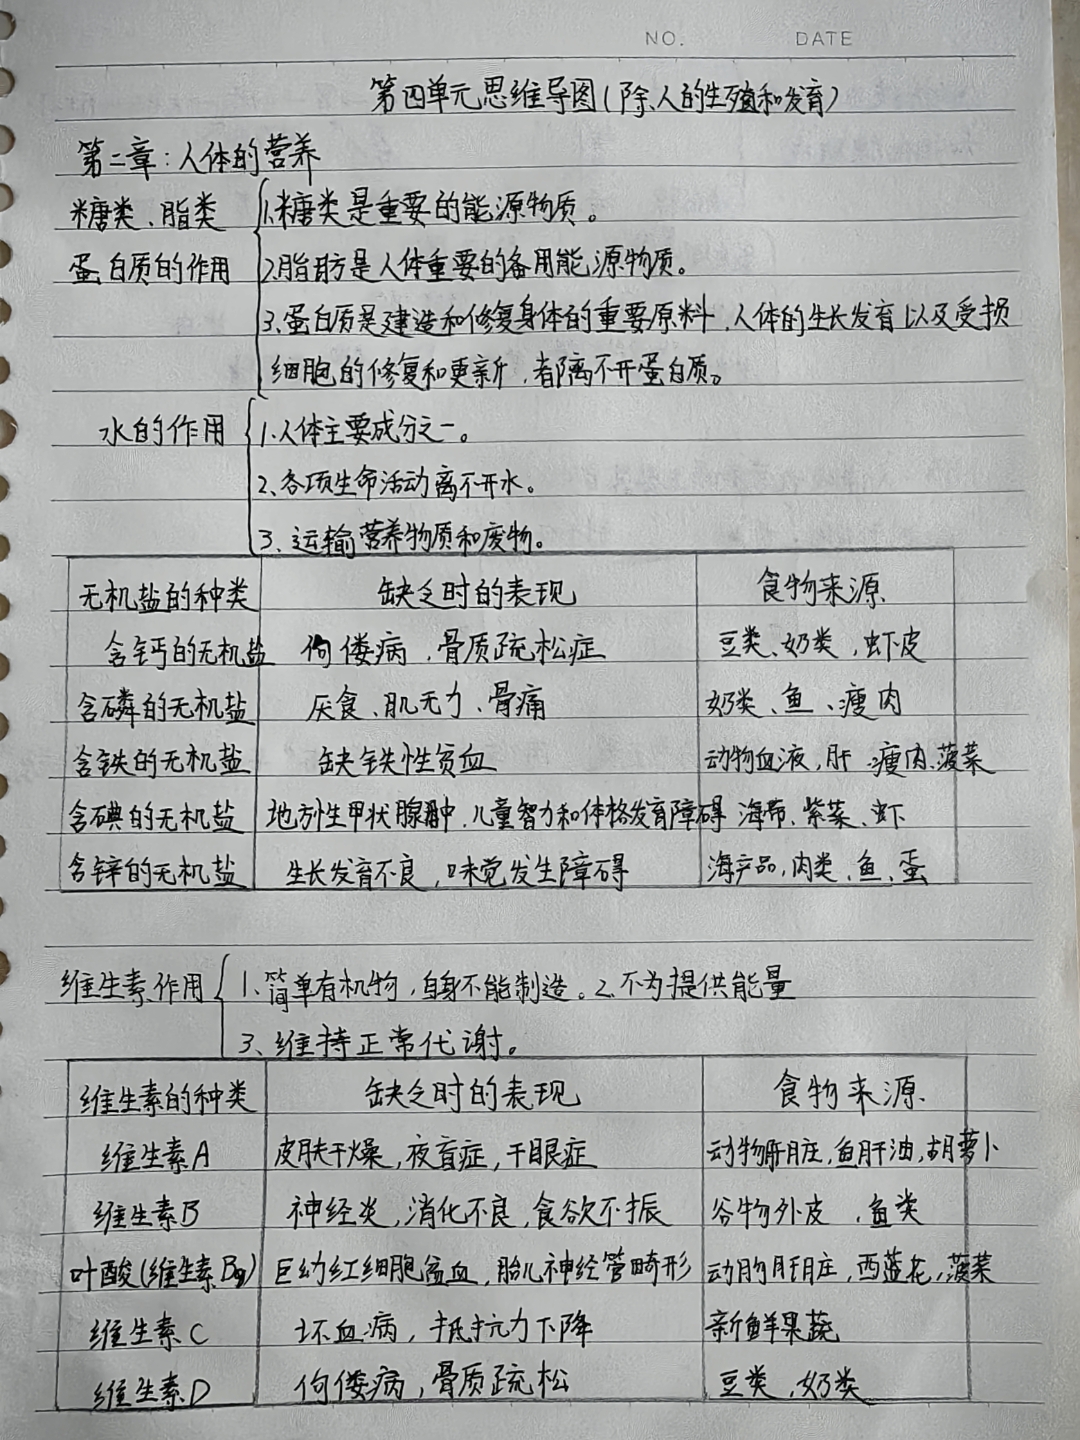 NO. DATE
第四单元思维导图(除人的生殖和发育)
第二章:人体的营养
糖类、脂类 1.糖类是重要的能源物质。
蛋白质的作用 2.脂肪是人体重要的备用能源物质。
3.蛋白质是建造和修复身体的重要原料,人体的生长发育以及受损
细胞的修复和更新,都离不开蛋白质。
水的作用 1.人体主要成分之一。
2、各项生命活动离不开水。
3、运输营养物质和废物。
无机盐的种类 缺乏时的表现 食物来源
含钙的无机盐 佝偻病、骨质疏松症 豆类、奶类,虾皮
含磷的无机盐 厌食、肌无力、骨痛 奶类、鱼、瘦肉
含铁的无机盐 缺铁性贫血 动物血液,肝、瘦肉、菠菜
含碘的无机盐 地方性甲状腺肿,儿童智力和体格发育障碍 海带、紫菜、虾
含锌的无机盐 生长发育不良,味觉发生障碍 海产品,肉类、鱼、蛋
维生素作用 1、简单有机物,自身不能制造。2、不为提供能量
3、维持正常代谢。
维生素的种类 缺乏时的表现 食物来源
维生素A 皮肤干燥,夜盲症,干眼症 动物肝脏,鱼肝油,胡萝卜
维生素B 神经炎,消化不良,食欲不振 谷物外皮,鱼类
叶酸(维生素B9) 巨幼红细胞贫血,胎儿神经管畸形 动物肝脏,西蓝花,菠菜
维生素C 坏血病,抵抗力下降 新鲜果蔬
维生素D 佝偻病,骨质疏松 豆类,奶类